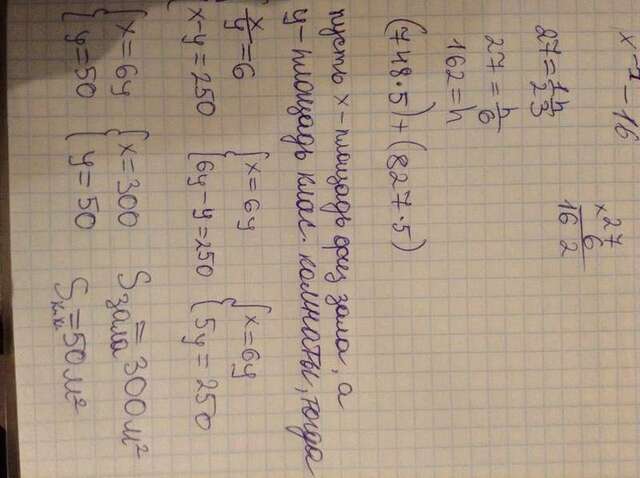 x⁻² - 16
27 = 1/2 h/3
27 = h/6
162 = h
×27
6
162
(748·5)+(827·5)
пусть x – площадь физ зала, а
y – площадь клас. комнаты, тогда
{ x/y = 6
x - y = 250
{ x = 6y
6y - y = 250
{ x = 6y
5y = 250
{ x = 6y
y = 50
{ x = 300
y = 50
S зала = 300 м²
S к.к = 50 м²